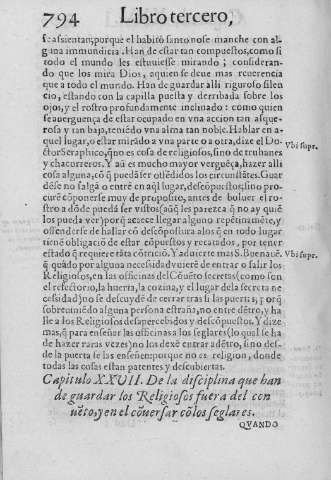 794 Libro tercero,
se assientan, porque el habito santo nose manche con al-
guna immundicia. Han de estar tan compuestos, como si
todo el mundo les estuuiesse mirando; consideran-
do que los mira Dios, a quien se deue mas reuerencia
que a todo el mundo. Han de guardar alli riguroso silen
cio, estando con la capilla puesta y derribada sobre los
ojos, y el rostro profundamente inclinado: como quien
se auerguença de estar ocupado en vna accion tan asque-
rosa y tan baxa, teniẽdo vna alma tan noble. Hablar en a-
quel lugar, o estar mirãdo a vna parte o a otra, dize el Do
ctor Seraphico, q̃ no es cosa de religiosos, sino de truhanes
y chacurreros. Y aũ es mucho mayor vergueẽça, hazer alli
cosa alguna, cõ q̃ puedã ser ofẽdidos los circunstãtes. Guar
dẽse no salgã o entrẽ en aq̃l lugar, descõpuestos, sino pro-
curẽ cõponerse muy de proposito, antes de boluer el ro-
stro a dõde puedã ser vistos (aũq̃ les parezca q̃ no ay quiẽ
los pueda ver) porq̃ acece llegar alguno repentinamẽte, y
offenderse de hallar cõ descõpostura a los q̃ en todo lugar
tienẽ obligaciõ de estar cõpuestos y recatados, por tener
estado q̃ requiere tãta cõtriciõ. Y aduierte mas S. Buenauẽ.
q̃ quãdo por alguna necessidad vuierẽ de entrar o salir los
Religiosos, en las officinas del Cõuẽto secretas (como son
el refectorio, la huerta, la cozina, y el lugar de la secreta ne
cessidad) no se descuydẽ de cerrar tras si las puertas; porq̃
sobreuiniẽdo alguna persona estraña, no entre dẽtro, y ha
lle a los Religiosos desapercebidos y descõpuestos. Y dize
mas, q̃ para enseñar las officinas a los seglares (lo qual se ha
de hazer raras vezes) no los dexẽ entrar adẽtro, sino des-
de la puerta se las enseñen: porque no es religion, donde
todas las cosas estan patentes y descubiertas.
Vbi supr.
Vbi supr.
Capitulo XXVII. De la disciplina que han
de guardar los Religiosos fuera del con
uẽto, y en el cõuersar cõ los seglares.
QVANDO